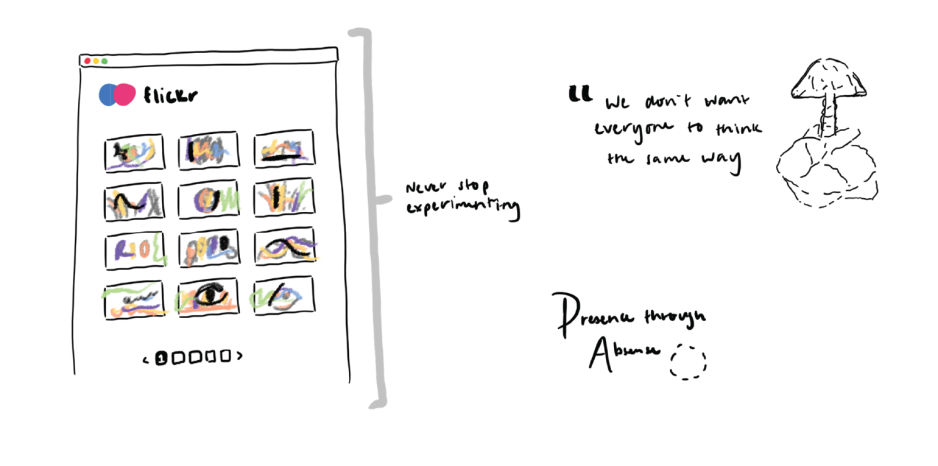 flickr
RIOE
‹ 1 ›
Never stop
experimenting
“ We don't want
everyone to think
the same way
Presence through
Absense